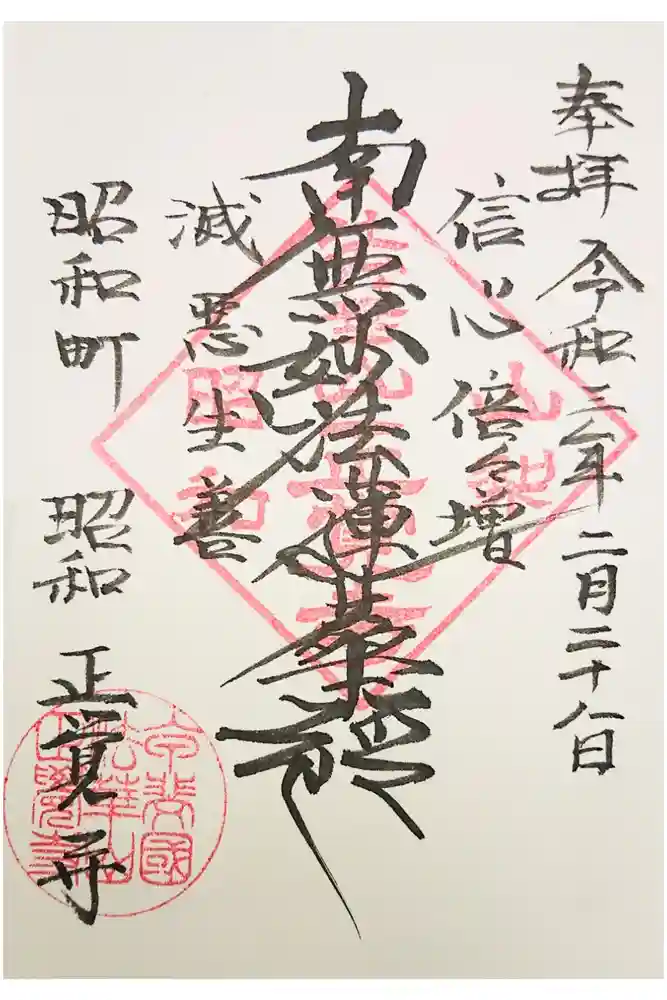 奉拝 令和三年二月二十八日
信心倍々増
南無妙法蓮華経
滅悪生善
昭和町 昭和 正覚寺